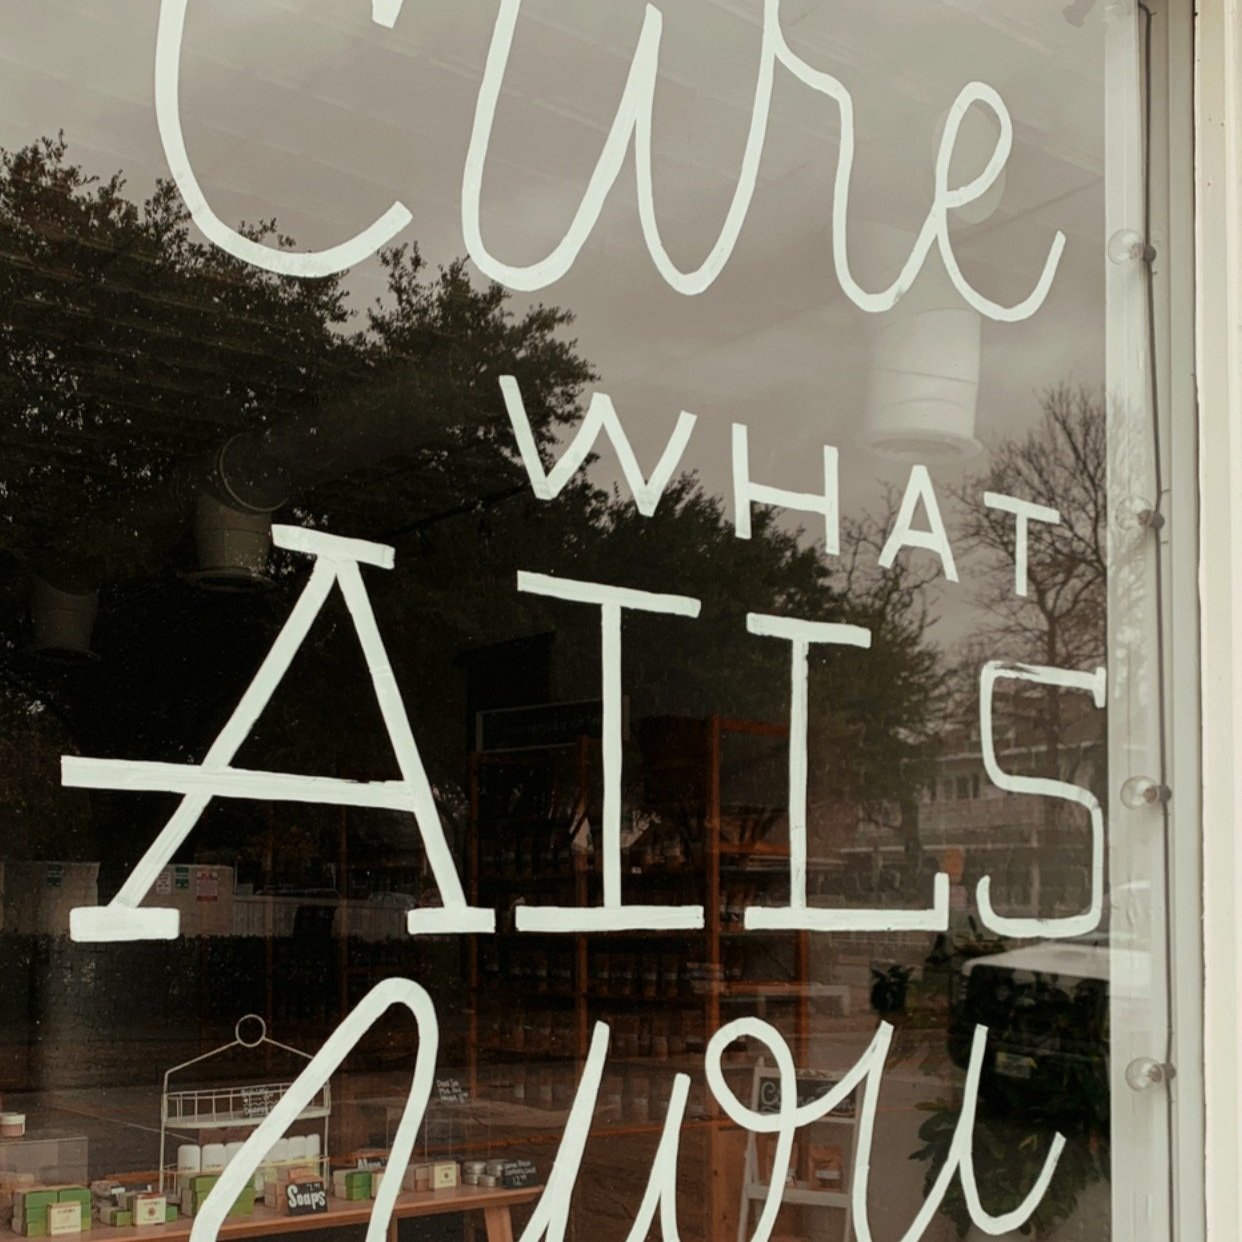 Cure
WHAT
AILS
you
Soaps